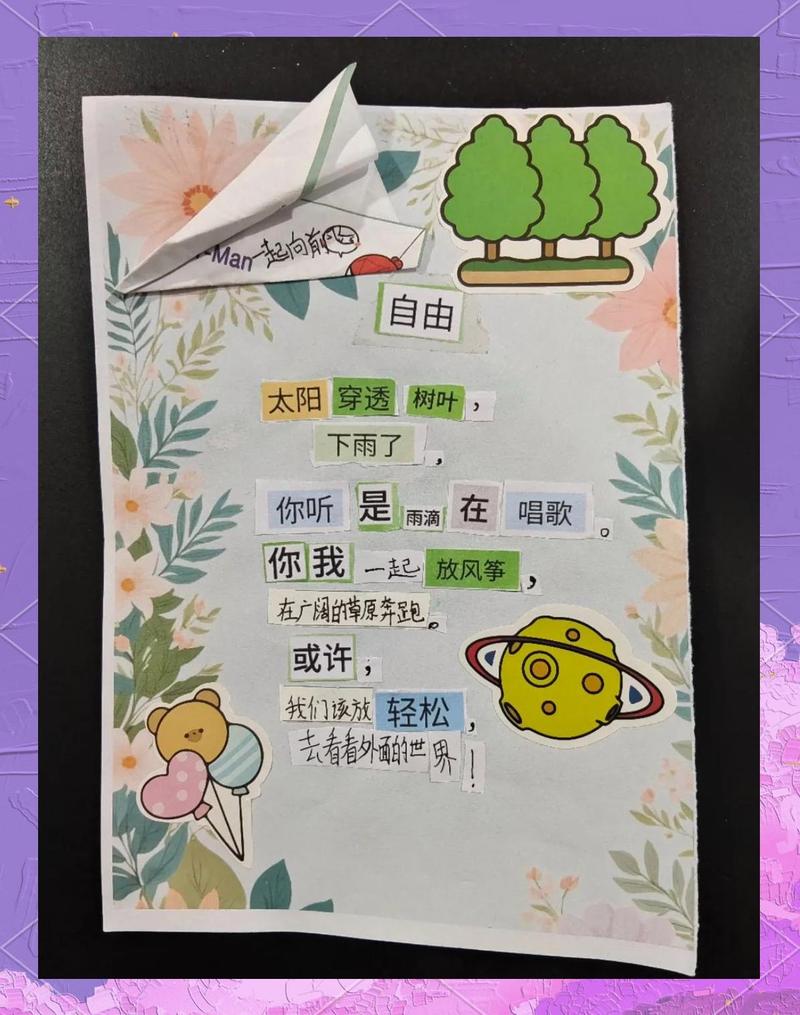 -Man一起向前
自由
太阳穿透树叶，
下雨了，
你听是雨滴在唱歌。
你我一起放风筝，
在广阔的草原奔跑。
或许；
我们该放轻松，
去看看外面的世界！